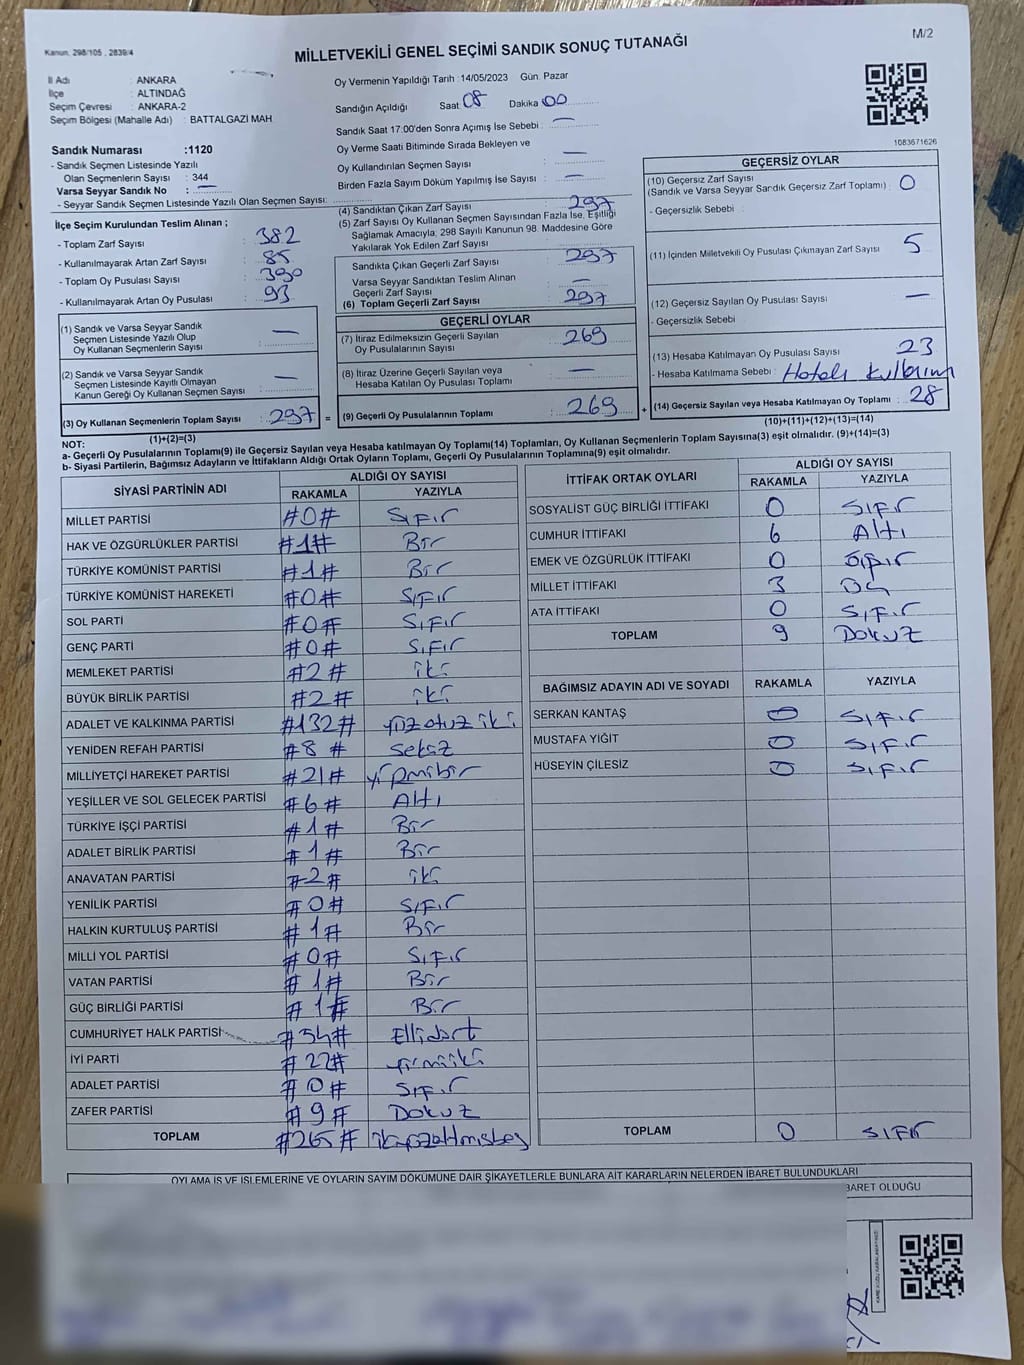 Kanun, 298/105, 2839/4
M/2
MİLLETVEKİLİ GENEL SEÇİMİ SANDIK SONUÇ TUTANAĞI
İl Adı : ANKARA
İlçe : ALTINDAĞ
Seçim Çevresi : ANKARA-2
Seçim Bölgesi (Mahalle Adı) : BATTALGAZİ MAH
Oy Vermenin Yapıldığı Tarih :14/05/2023 Gün: Pazar
Sandığın Açıldığı Saat: 08 Dakika 00
Sandık Saat 17:00'den Sonra Açımış İse Sebebi : —
Oy Verme Saati Bitiminde Sırada Bekleyen ve
Oy Kullandırılan Seçmen Sayısı : —
Birden Fazla Sayım Döküm Yapılmış İse Sayısı : —
1083671626
Sandık Numarası :1120
- Sandık Seçmen Listesinde Yazılı
Olan Seçmenlerin Sayısı : 344
Varsa Seyyar Sandık No : —
- Seyyar Sandık Seçmen Listesinde Yazılı Olan Seçmen Sayısı:
İlçe Seçim Kurulundan Teslim Alınan ;
- Toplam Zarf Sayısı : 382
- Kullanılmayarak Artan Zarf Sayısı : 85
- Toplam Oy Pusulası Sayısı : 390
- Kullanılmayarak Artan Oy Pusulası : 93
(1) Sandık ve Varsa Seyyar Sandık
Seçmen Listesinde Yazılı Olup
Oy Kullanan Seçmenlerin Sayısı : —
(2) Sandık ve Varsa Seyyar Sandık
Seçmen Listesinde Kayıtlı Olmayan
Kanun Gereği Oy Kullanan Seçmen Sayısı : —
(3) Oy Kullanan Seçmenlerin Toplam Sayısı : 297 =
(1)+(2)=(3)
(4) Sandıktan Çıkan Zarf Sayısı : 297
(5) Zarf Sayısı Oy Kullanan Seçmen Sayısından Fazla İse, Eşitliği
Sağlamak Amacıyla, 298 Sayılı Kanunun 98. Maddesine Göre
Yakılarak Yok Edilen Zarf Sayısı
Sandıkta Çıkan Geçerli Zarf Sayısı : 297
Varsa Seyyar Sandıktan Teslim Alınan
Geçerli Zarf Sayısı : —
(6) Toplam Geçerli Zarf Sayısı : 297
GEÇERLİ OYLAR
(7) İtiraz Edilmeksizin Geçerli Sayılan
Oy Pusulalarının Sayısı : 269
(8) İtiraz Üzerine Geçerli Sayılan veya
Hesaba Katılan Oy Pusulası Toplamı : —
(9) Geçerli Oy Pusulalarının Toplamı : 269 +
GEÇERSİZ OYLAR
(10) Geçersiz Zarf Sayısı
(Sandık ve Varsa Seyyar Sandık Geçersiz Zarf Toplamı) : 0
- Geçersizlik Sebebi :
(11) İçinden Milletvekili Oy Pusulası Çıkmayan Zarf Sayısı : 5
(12) Geçersiz Sayılan Oy Pusulası Sayısı : —
- Geçersizlik Sebebi
(13) Hesaba Katılmayan Oy Pusulası Sayısı : 23
- Hesaba Katılmama Sebebi : Hatalı Kullanım
(14) Geçersiz Sayılan veya Hesaba Katılmayan Oy Toplamı : 28
(10)+(11)+(12)+(13)=(14)
NOT:
a- Geçerli Oy Pusulalarının Toplamı(9) ile Geçersiz Sayılan veya Hesaba katılmayan Oy Toplamı(14) Toplamları, Oy Kullanan Seçmenlerin Toplam Sayısına(3) eşit olmalıdır. (9)+(14)=(3)
b- Siyasi Partilerin, Bağımsız Adayların ve İttifakların Aldığı Ortak Oyların Toplamı, Geçerli Oy Pusulalarının Toplamına(9) eşit olmalıdır.
SİYASİ PARTİNİN ADI
ALDIĞI OY SAYISI
RAKAMLA YAZIYLA
MİLLET PARTİSİ #0# Sıfır
HAK VE ÖZGÜRLÜKLER PARTİSİ #1# Bir
TÜRKİYE KOMÜNİST PARTİSİ #1# Bir
TÜRKİYE KOMÜNİST HAREKETİ #0# Sıfır
SOL PARTİ #0# Sıfır
GENÇ PARTİ #0# Sıfır
MEMLEKET PARTİSİ #2# iki
BÜYÜK BİRLİK PARTİSİ #2# iki
ADALET VE KALKINMA PARTİSİ #132# yüz otuz iki
YENİDEN REFAH PARTİSİ #8# sekiz
MİLLİYETÇİ HAREKET PARTİSİ #21# yirmibir
YEŞİLLER VE SOL GELECEK PARTİSİ #6# Altı
TÜRKİYE İŞÇİ PARTİSİ #1# Bir
ADALET BİRLİK PARTİSİ #1# Bir
ANAVATAN PARTİSİ #2# iki
YENİLİK PARTİSİ #0# Sıfır
HALKIN KURTULUŞ PARTİSİ #1# Bir
MİLLİ YOL PARTİSİ #0# Sıfır
VATAN PARTİSİ #1# Bir
GÜÇ BİRLİĞİ PARTİSİ #1# Bir
CUMHURİYET HALK PARTİSİ #54# Ellidört
İYİ PARTİ #22# yirmiiki
ADALET PARTİSİ #0# Sıfır
ZAFER PARTİSİ #9# Dokuz
TOPLAM #265# ikiyüzaltmışbeş
İTTİFAK ORTAK OYLARI
ALDIĞI OY SAYISI
RAKAMLA YAZIYLA
SOSYALİST GÜÇ BİRLİĞİ İTTİFAKI 0 Sıfır
CUMHUR İTTİFAKI 6 Altı
EMEK VE ÖZGÜRLÜK İTTİFAKI 0 Sıfır
MİLLET İTTİFAKI 3 Üç
ATA İTTİFAKI 0 Sıfır
TOPLAM 9 Dokuz
BAĞIMSIZ ADAYIN ADI VE SOYADI RAKAMLA YAZIYLA
SERKAN KANTAŞ 0 Sıfır
MUSTAFA YİĞİT 0 Sıfır
HÜSEYİN ÇİLESİZ 0 Sıfır
TOPLAM 0 SIFIR
OYLAMA İŞ VE İŞLEMLERİNE VE OYLARIN SAYIM DÖKÜMÜNE DAİR ŞİKAYETLERLE BUNLARA AİT KARARLARIN NELERDEN İBARET BULUNDUKLARI
BARET OLDUĞU